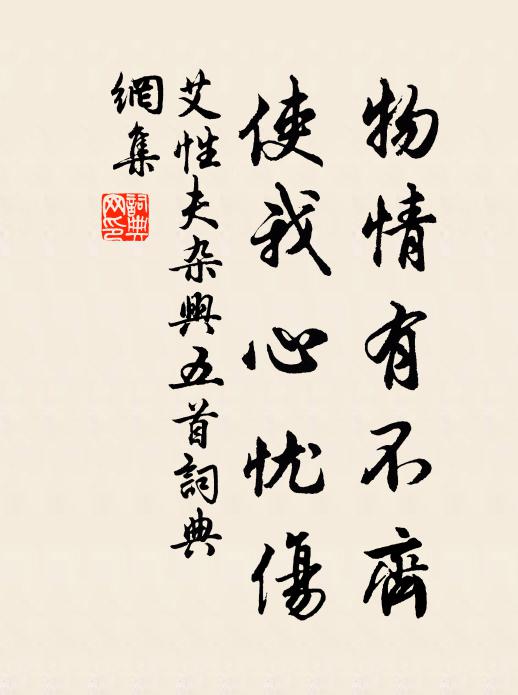 物情有不齊
使我心忧傷
艾性夫杂興五首詞典
網集
詞典网印